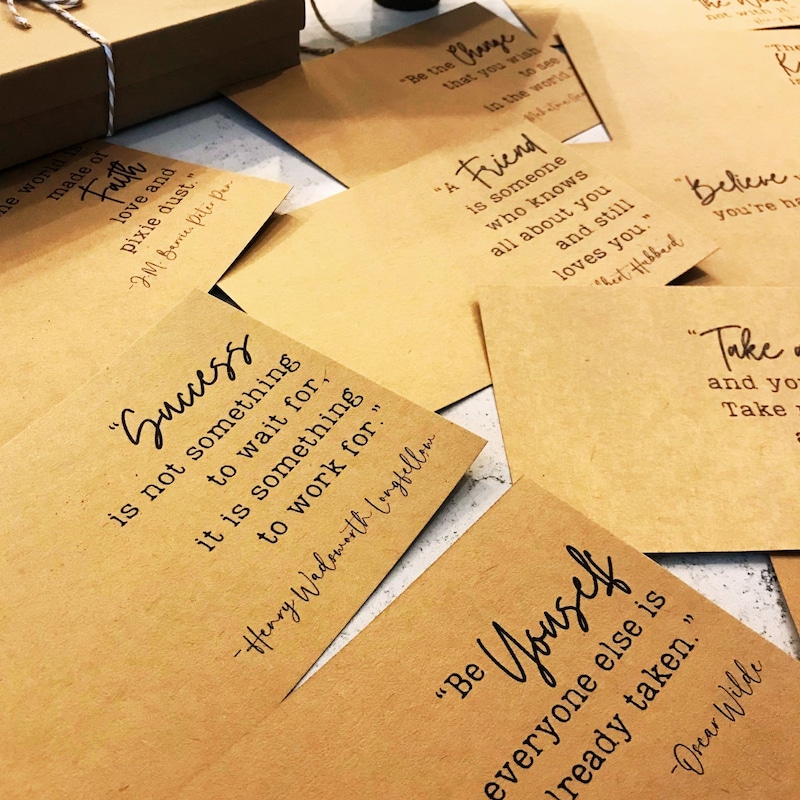 "Be the Change
that you wish
to see
in the world.
The
not with
"The
"A Friend
is someone
who knows
all about you
and still
loves you."
Hubbard
world is
made of
Faith
love and
pixie dust."
-J.M. Barrie, Peter Pan
"Believe
you're ha
"Take
and yo
Take
"Success
is not something
to wait for,
it is something
to work for."
-Henry Wadsworth Longfellow
"Be Youself
everyone else is
lready taken."
-Oscar Wilde